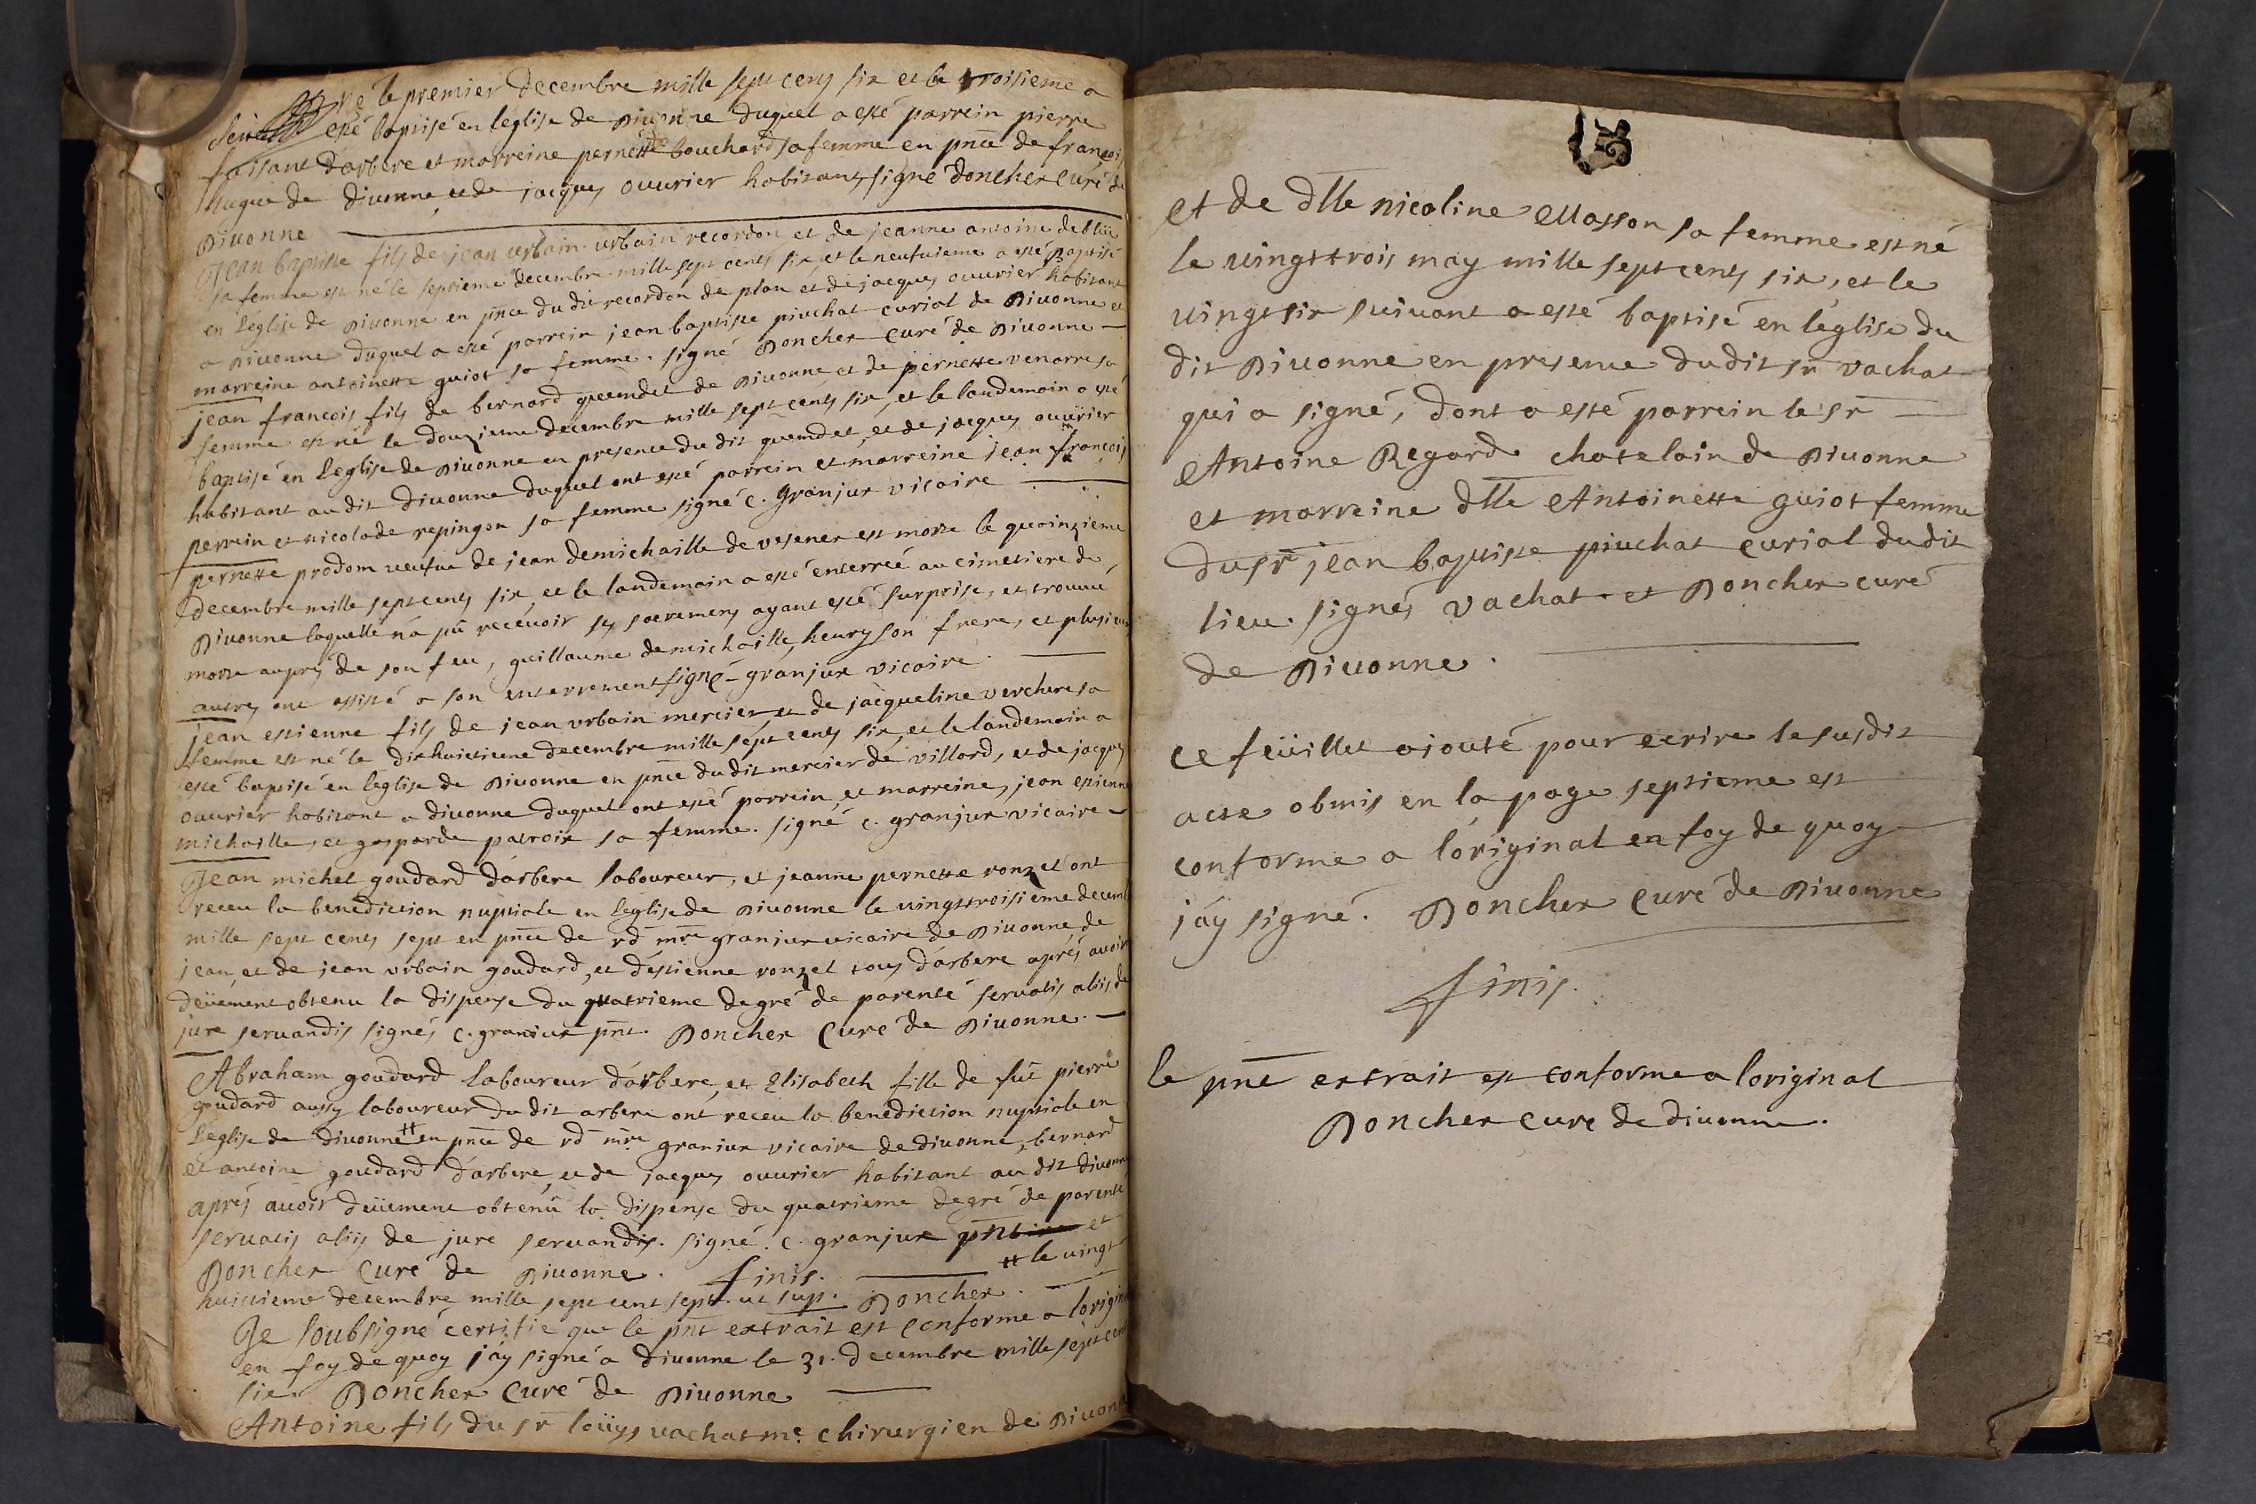 né le premier decembre mille sept cens six et le troisieme a
esté baptisé en leglise de Diuonne duquel a esté parrein pierre
faisant darbere et marreine pernette bouchard sa femme en pn̄ce de françois
hugue de diuonne, et de jacques ouurier habitans, signé Doncher Curé de
Diuonne
Jean baptiste fils de jean urbain urbain recordon et de jeanne antoine deblüe
sa femme est né le septieme decembre mille sept cens six, et le neufuieme a esté Baptisé
en l'église de Diuonne en pn̄ce du dit recordon de plan et de jacques ouurier habitant
a Diuonne duquel a esté parrein jean baptiste piuchat curial de Diuonne et
marreine antoinette guiot sa femme. signé Doncher Curé de Diuonne
jean françois fils de bernard quemdet de Diuonne et de pernette venarre sa
femme est né le douzieme decembre mille sept cens six, et le landemain a esté
baptisé en l'eglise de Diuonne en presence du dit quemdet, et de jacques ouurier
habitant au dit diuonne duquel ont esté parrein et marreine jean françois
perrein et nicolade repingon sa femme signé c. Granjux vicaire
pernette prodom ueufue de jean demichaille de vesenex est morte le quainzieme
decembre mille sept cens six, et le landemain a esté enterreé au cimetiere de
Diuonne laquelle n'a pû receuoir ses sacremens ayant esté surprise, et trouueé
morte auprés de son feu, guillaume demichaille, henry son frere, et plusieurs
autres ont assisté a son enterrement signé granjux vicaire
jean estienne fils de jean urbain mercier et de jacqueline verchere sa
femme est né le dixhuictieme decembre mille sept cens six, et le landemain a
esté baptisé en leglise de Diuonne en pn̄ce du dit mercier de villard, et de jacques
ouurier habitant a diuonne duquel ont esté parrein, et marreine, jean estienne
michaille, et gasparde patroix sa femme. signé c. granjux vicaire
Jean michel goudard d'arbere laboureur, et jeanne pernette ronzel ont
receu la benediction nuptiale en leglise de Diuonne le uingttroisieme decemb
mille sept cens sept en pn̄ce de rd mre granjux uicaire de Diuonne, de
jean, et de jean urbain goudard, et d'estienne ronzel tous d'arbere aprés auoir
deüement obtenu la dispense du quatrieme degré de parenté seruatis aliis de
jure seruandis signés c. granjux pn̄t. Doncher Curé de Diuonne.
Abraham goudard laboureur d'arbere, et Elisabeth fille de fuë pierre
goudard aussy laboureur du dit arbere ont receu la benediction nuptiale en
l'eglise de diuonne # en pn̄ce de rd mre granjux vicaire de diuonne, bernard
et antoine goudard d'arbere, et de jacques ouurier habitant au dit diuonne
aprés auoir deüement obtenü la dispense du quatrieme degré de parenté
seruatis aliis de jure seruandis. signé. c. granjux et
Doncher Curé de Diuonne. finis. # le uingt
huictieme decembre mille sept cent sept. ut sup. Doncher.
Je soubsigné certifie que le pn̄t extrait est conforme a lorigin
en foy de quoy j'ay signé a diuonne le 31. decembre mille sept cens
six. Doncher Curé de Diuonne
Antoine fils du sr loüys vachat me. chirurgien de Diuonne
et de dlle nicoline Masson sa femme est né
le uingttrois may mille sept cens six, et le
uingtsix suiuant a esté baptisé en l'église du
dit Diuonne en presence dudit sr vachat
qui a signé, dont a esté parrein le sr
Antoine Regard chatelain de Diuonne
et marreine dlle Antoinette guiot femme
du sr jean baptiste piuchat curial dudit
lieu. signés vachat et Doncher curé
de Diuonne.
ce feüillet ajouté pour ecrire le susdit
acte obmis en la page septieme est
conforme a l'original en foy de quoy
j'ay signé. Doncher Curé de Diuonne
finis.
le pn̄t extrait est conforme a loriginal
Doncher Cure de diuonne.